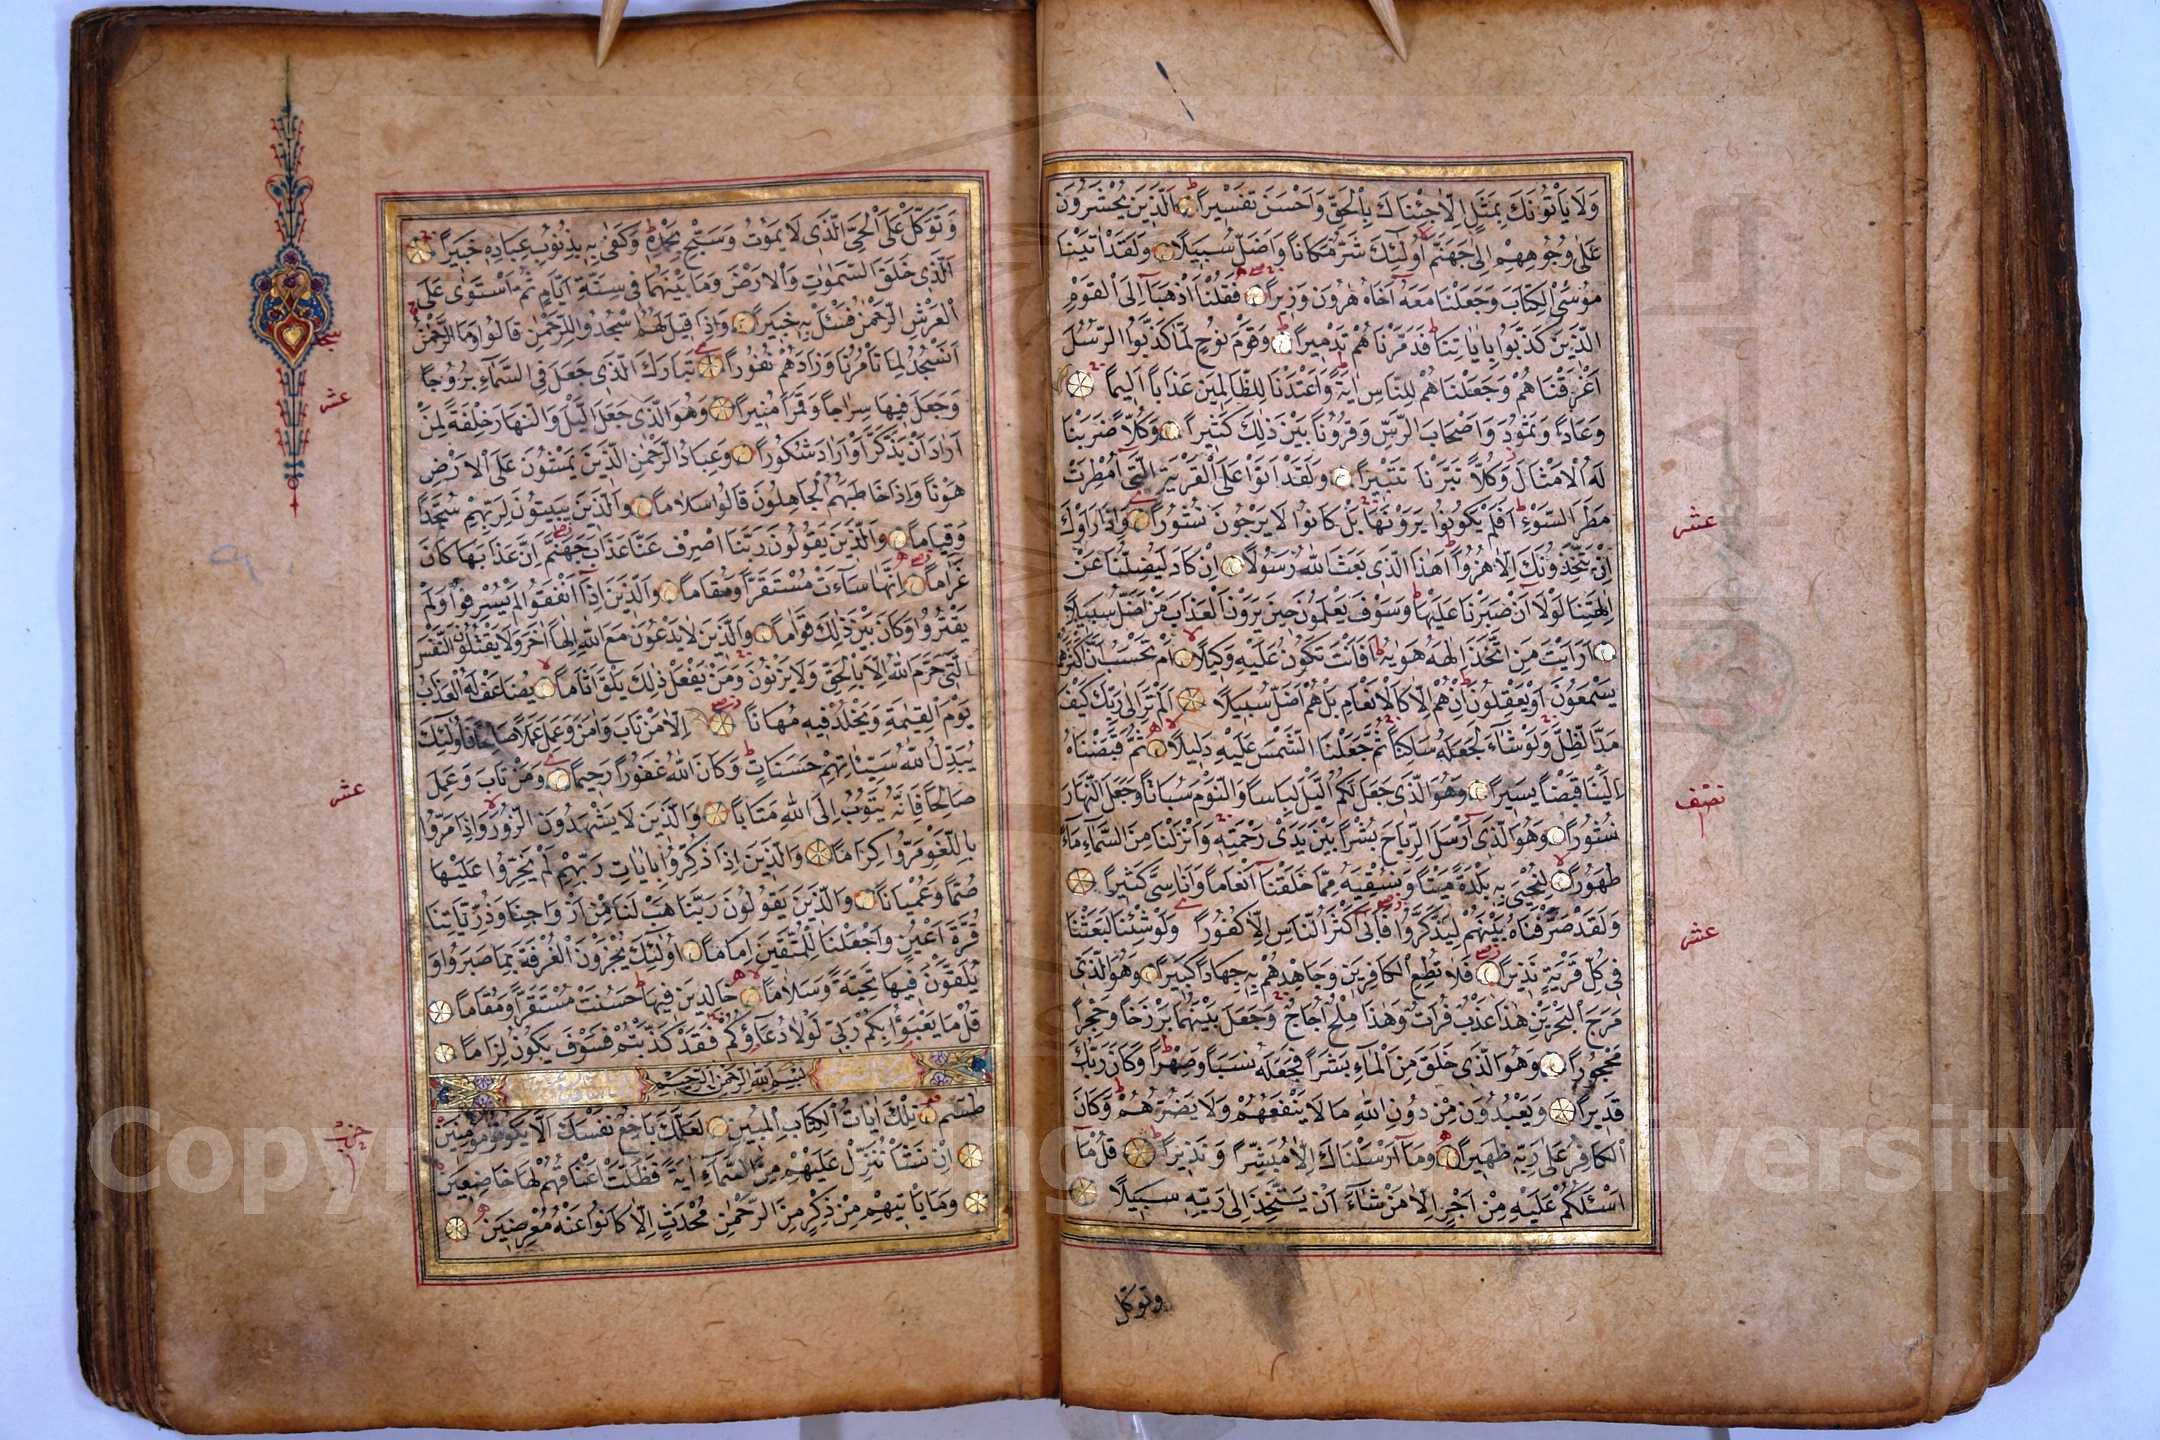 وَلَا يَأْتُونَكَ بِمَثَلٍ اِلَّا جِئْنَاكَ بِالْحَقِّ وَاَحْسَنَ تَفْسِيرًا اَلَّذِينَ يُحْشَرُونَ
عَلٰى وُجُوهِهِمْ اِلٰى جَهَنَّمَ اُولٰئِكَ شَرٌّ مَكَانًا وَاَضَلُّ سَبِيلًا وَلَقَدْ اٰتَيْنَا
مُوسَى الْكِتَابَ وَجَعَلْنَا مَعَهُ اَخَاهُ هٰرُونَ وَزِيرًا فَقُلْنَا اذْهَبَا اِلَى الْقَوْمِ
الَّذِينَ كَذَّبُوا بِاٰيَاتِنَا فَدَمَّرْنَاهُمْ تَدْمِيرًا وَقَوْمَ نُوحٍ لَمَّا كَذَّبُوا الرُّسُلَ
اَغْرَقْنَاهُمْ وَجَعَلْنَاهُمْ لِلنَّاسِ اٰيَةً وَاَعْتَدْنَا لِلظَّالِمِينَ عَذَابًا اَلِيمًا
وَعَادًا وَثَمُودَ وَاَصْحَابَ الرَّسِّ وَقُرُونًا بَيْنَ ذٰلِكَ كَثِيرًا وَكُلًّا ضَرَبْنَا
لَهُ الْاَمْثَالَ وَكُلًّا تَبَّرْنَا تَتْبِيرًا وَلَقَدْ اَتَوْا عَلَى الْقَرْيَةِ الَّتِي اُمْطِرَتْ
مَطَرَ السَّوْءِ اَفَلَمْ يَكُونُوا يَرَوْنَهَا بَلْ كَانُوا لَا يَرْجُونَ نُشُورًا وَاِذَا رَاَوْكَ
عشر
اِنْ يَتَّخِذُونَكَ اِلَّا هُزُوًا اَهٰذَا الَّذِي بَعَثَ اللّٰهُ رَسُولًا اِنْ كَادَ لَيُضِلُّنَا عَنْ
اٰلِهَتِنَا لَوْلَا اَنْ صَبَرْنَا عَلَيْهَا وَسَوْفَ يَعْلَمُونَ حِينَ يَرَوْنَ الْعَذَابَ مَنْ اَضَلُّ سَبِيلًا
اَرَاَيْتَ مَنِ اتَّخَذَ اِلٰهَهُ هَوٰيهُ اَفَاَنْتَ تَكُونُ عَلَيْهِ وَكِيلًا اَمْ تَحْسَبُ اَنَّ اَكْثَرَهُمْ
يَسْمَعُونَ اَوْ يَعْقِلُونَ اِنْ هُمْ اِلَّا كَالْاَنْعَامِ بَلْ هُمْ اَضَلُّ سَبِيلًا اَلَمْ تَرَ اِلٰى رَبِّكَ كَيْفَ
مَدَّ الظِّلَّ وَلَوْ شَاءَ لَجَعَلَهُ سَاكِنًا ثُمَّ جَعَلْنَا الشَّمْسَ عَلَيْهِ دَلِيلًا ثُمَّ قَبَضْنَاهُ
اِلَيْنَا قَبْضًا يَسِيرًا وَهُوَ الَّذِي جَعَلَ لَكُمُ الَّيْلَ لِبَاسًا وَالنَّوْمَ سُبَاتًا وَجَعَلَ النَّهَارَ
نصف
نُشُورًا وَهُوَ الَّذِي اَرْسَلَ الرِّيَاحَ بُشْرًا بَيْنَ يَدَيْ رَحْمَتِهِ وَاَنْزَلْنَا مِنَ السَّمَاءِ مَاءً
طَهُورًا لِنُحْيِيَ بِهِ بَلْدَةً مَيْتًا وَنُسْقِيَهُ مِمَّا خَلَقْنَا اَنْعَامًا وَاَنَاسِيَّ كَثِيرًا
وَلَقَدْ صَرَّفْنَاهُ بَيْنَهُمْ لِيَذَّكَّرُوا فَاَبٰى اَكْثَرُ النَّاسِ اِلَّا كُفُورًا وَلَوْ شِئْنَا لَبَعَثْنَا
عشر
فِي كُلِّ قَرْيَةٍ نَذِيرًا فَلَا تُطِعِ الْكَافِرِينَ وَجَاهِدْهُمْ بِهِ جِهَادًا كَبِيرًا وَهُوَ الَّذِي
مَرَجَ الْبَحْرَيْنِ هٰذَا عَذْبٌ فُرَاتٌ وَهٰذَا مِلْحٌ اُجَاجٌ وَجَعَلَ بَيْنَهُمَا بَرْزَخًا وَحِجْرًا
مَحْجُورًا وَهُوَ الَّذِي خَلَقَ مِنَ الْمَاءِ بَشَرًا فَجَعَلَهُ نَسَبًا وَصِهْرًا وَكَانَ رَبُّكَ
قَدِيرًا وَيَعْبُدُونَ مِنْ دُونِ اللّٰهِ مَا لَا يَنْفَعُهُمْ وَلَا يَضُرُّهُمْ وَكَانَ
الْكَافِرُ عَلٰى رَبِّهِ ظَهِيرًا وَمَا اَرْسَلْنَاكَ اِلَّا مُبَشِّرًا وَنَذِيرًا قُلْ مَا
اَسْئَلُكُمْ عَلَيْهِ مِنْ اَجْرٍ اِلَّا مَنْ شَاءَ اَنْ يَتَّخِذَ اِلٰى رَبِّهِ سَبِيلًا
وتوكل
وَتَوَكَّلْ عَلَى الْحَيِّ الَّذِي لَا يَمُوتُ وَسَبِّحْ بِحَمْدِهِ وَكَفٰى بِهِ بِذُنُوبِ عِبَادِهِ خَبِيرًا
اَلَّذِي خَلَقَ السَّمٰوَاتِ وَالْاَرْضَ وَمَا بَيْنَهُمَا فِي سِتَّةِ اَيَّامٍ ثُمَّ اسْتَوٰى عَلَى
الْعَرْشِ الرَّحْمٰنُ فَسْئَلْ بِهِ خَبِيرًا وَاِذَا قِيلَ لَهُمُ اسْجُدُوا لِلرَّحْمٰنِ قَالُوا وَمَا الرَّحْمٰنُ
اَنَسْجُدُ لِمَا تَاْمُرُنَا وَزَادَهُمْ نُفُورًا تَبَارَكَ الَّذِي جَعَلَ فِي السَّمَاءِ بُرُوجًا
عشر
وَجَعَلَ فِيهَا سِرَاجًا وَقَمَرًا مُنِيرًا وَهُوَ الَّذِي جَعَلَ الَّيْلَ وَالنَّهَارَ خِلْفَةً لِمَنْ
اَرَادَ اَنْ يَذَّكَّرَ اَوْ اَرَادَ شُكُورًا وَعِبَادُ الرَّحْمٰنِ الَّذِينَ يَمْشُونَ عَلَى الْاَرْضِ
هَوْنًا وَاِذَا خَاطَبَهُمُ الْجَاهِلُونَ قَالُوا سَلَامًا وَالَّذِينَ يَبِيتُونَ لِرَبِّهِمْ سُجَّدًا
وَقِيَامًا وَالَّذِينَ يَقُولُونَ رَبَّنَا اصْرِفْ عَنَّا عَذَابَ جَهَنَّمَ اِنَّ عَذَابَهَا كَانَ
غَرَامًا اِنَّهَا سَاءَتْ مُسْتَقَرًّا وَمُقَامًا وَالَّذِينَ اِذَا اَنْفَقُوا لَمْ يُسْرِفُوا وَلَمْ
يَقْتُرُوا وَكَانَ بَيْنَ ذٰلِكَ قَوَامًا وَالَّذِينَ لَا يَدْعُونَ مَعَ اللّٰهِ اِلٰهًا اٰخَرَ وَلَا يَقْتُلُونَ النَّفْسَ
الَّتِي حَرَّمَ اللّٰهُ اِلَّا بِالْحَقِّ وَلَا يَزْنُونَ وَمَنْ يَفْعَلْ ذٰلِكَ يَلْقَ اَثَامًا يُضَاعَفْ لَهُ الْعَذَابُ
يَوْمَ الْقِيٰمَةِ وَيَخْلُدْ فِيهِ مُهَانًا اِلَّا مَنْ تَابَ وَاٰمَنَ وَعَمِلَ عَمَلًا صَالِحًا فَاُولٰئِكَ
يُبَدِّلُ اللّٰهُ سَيِّئَاتِهِمْ حَسَنَاتٍ وَكَانَ اللّٰهُ غَفُورًا رَحِيمًا وَمَنْ تَابَ وَعَمِلَ
عشر
صَالِحًا فَاِنَّهُ يَتُوبُ اِلَى اللّٰهِ مَتَابًا وَالَّذِينَ لَا يَشْهَدُونَ الزُّورَ وَاِذَا مَرُّوا
بِاللَّغْوِ مَرُّوا كِرَامًا وَالَّذِينَ اِذَا ذُكِّرُوا بِاٰيَاتِ رَبِّهِمْ لَمْ يَخِرُّوا عَلَيْهَا
صُمًّا وَعُمْيَانًا وَالَّذِينَ يَقُولُونَ رَبَّنَا هَبْ لَنَا مِنْ اَزْوَاجِنَا وَذُرِّيَّاتِنَا
قُرَّةَ اَعْيُنٍ وَاجْعَلْنَا لِلْمُتَّقِينَ اِمَامًا اُولٰئِكَ يُجْزَوْنَ الْغُرْفَةَ بِمَا صَبَرُوا وَ
يُلَقَّوْنَ فِيهَا تَحِيَّةً وَسَلَامًا خَالِدِينَ فِيهَا حَسُنَتْ مُسْتَقَرًّا وَمُقَامًا
قُلْ مَا يَعْبَؤُا بِكُمْ رَبِّي لَوْلَا دُعَاؤُكُمْ فَقَدْ كَذَّبْتُمْ فَسَوْفَ يَكُونُ لِزَامًا
بسم الله الرحمن الرحيم
طٰسٓمٓ تِلْكَ اٰيَاتُ الْكِتَابِ الْمُبِينِ لَعَلَّكَ بَاخِعٌ نَفْسَكَ اَلَّا يَكُونُوا مُؤْمِنِينَ
حزب
اِنْ نَشَأْ نُنَزِّلْ عَلَيْهِمْ مِنَ السَّمَاءِ اٰيَةً فَظَلَّتْ اَعْنَاقُهُمْ لَهَا خَاضِعِينَ
وَمَا يَاْتِيهِمْ مِنْ ذِكْرٍ مِنَ الرَّحْمٰنِ مُحْدَثٍ اِلَّا كَانُوا عَنْهُ مُعْرِضِينَ